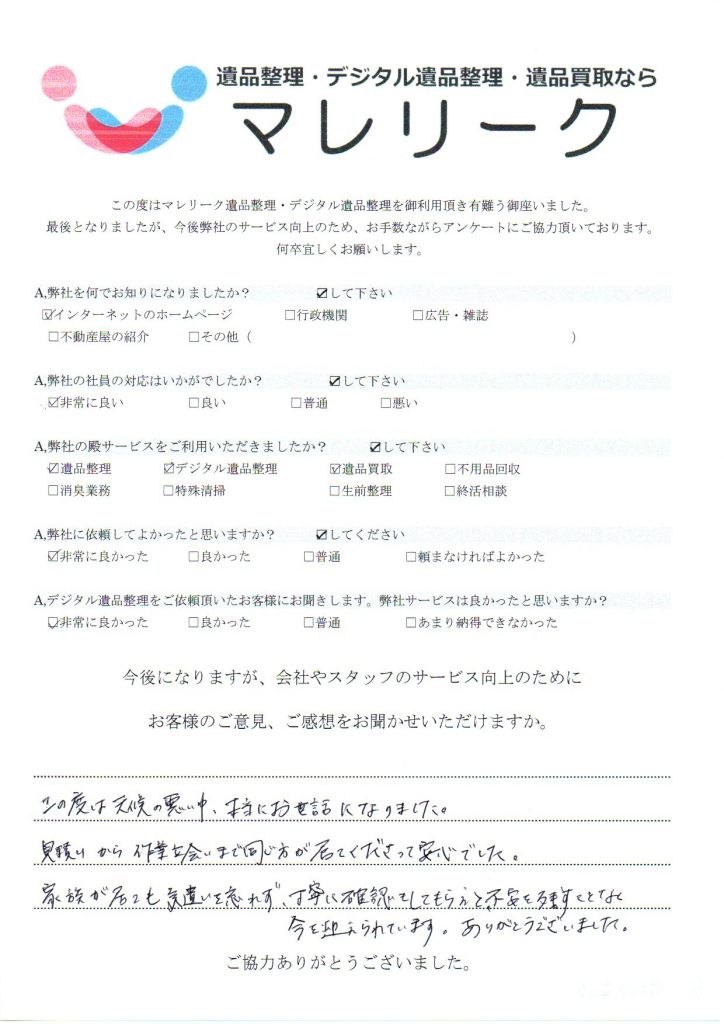 遺品整理・デジタル遺品整理・遺品買取なら
マレリーク
この度はマレリーク遺品整理・デジタル遺品整理を御利用頂き有難う御座いました。
最後となりましたが、今後弊社のサービス向上のため、お手数ながらアンケートにご協力頂いております。
何卒宜しくお願いします。
A,弊社を何でお知りになりましたか? ☑して下さい
☑インターネットのホームページ □行政機関 □広告・雑誌
□不動産屋の紹介 □その他( )
A,弊社の社員の対応はいかがでしたか? ☑して下さい
☑非常に良い □良い □普通 □悪い
A,弊社の殿サービスをご利用いただきましたか? ☑して下さい
☑遺品整理 ☑デジタル遺品整理 ☑遺品買取 □不用品回収
□消臭業務 □特殊清掃 □生前整理 □終活相談
A,弊社に依頼してよかったと思いますか? ☑してください
☑非常に良かった □良かった □普通 □頼まなければよかった
A,デジタル遺品整理をご依頼頂いたお客様にお聞きします。弊社サービスは良かったと思いますか?
☑非常に良かった □良かった □普通 □あまり納得できなかった
今後になりますが、会社やスタッフのサービス向上のために
お客様のご意見、ご感想をお聞かせいただけますか。
この度は天候の悪い中、本当にお世話になりました。
見積りから作業立会いまで同じ方が居てくださって安心でした。
家族が居ても気遣いを忘れず、丁寧に確認をしてもらえと不安を残すことなく
今を迎えられています。ありがとうございました。
ご協力ありがとうございました。